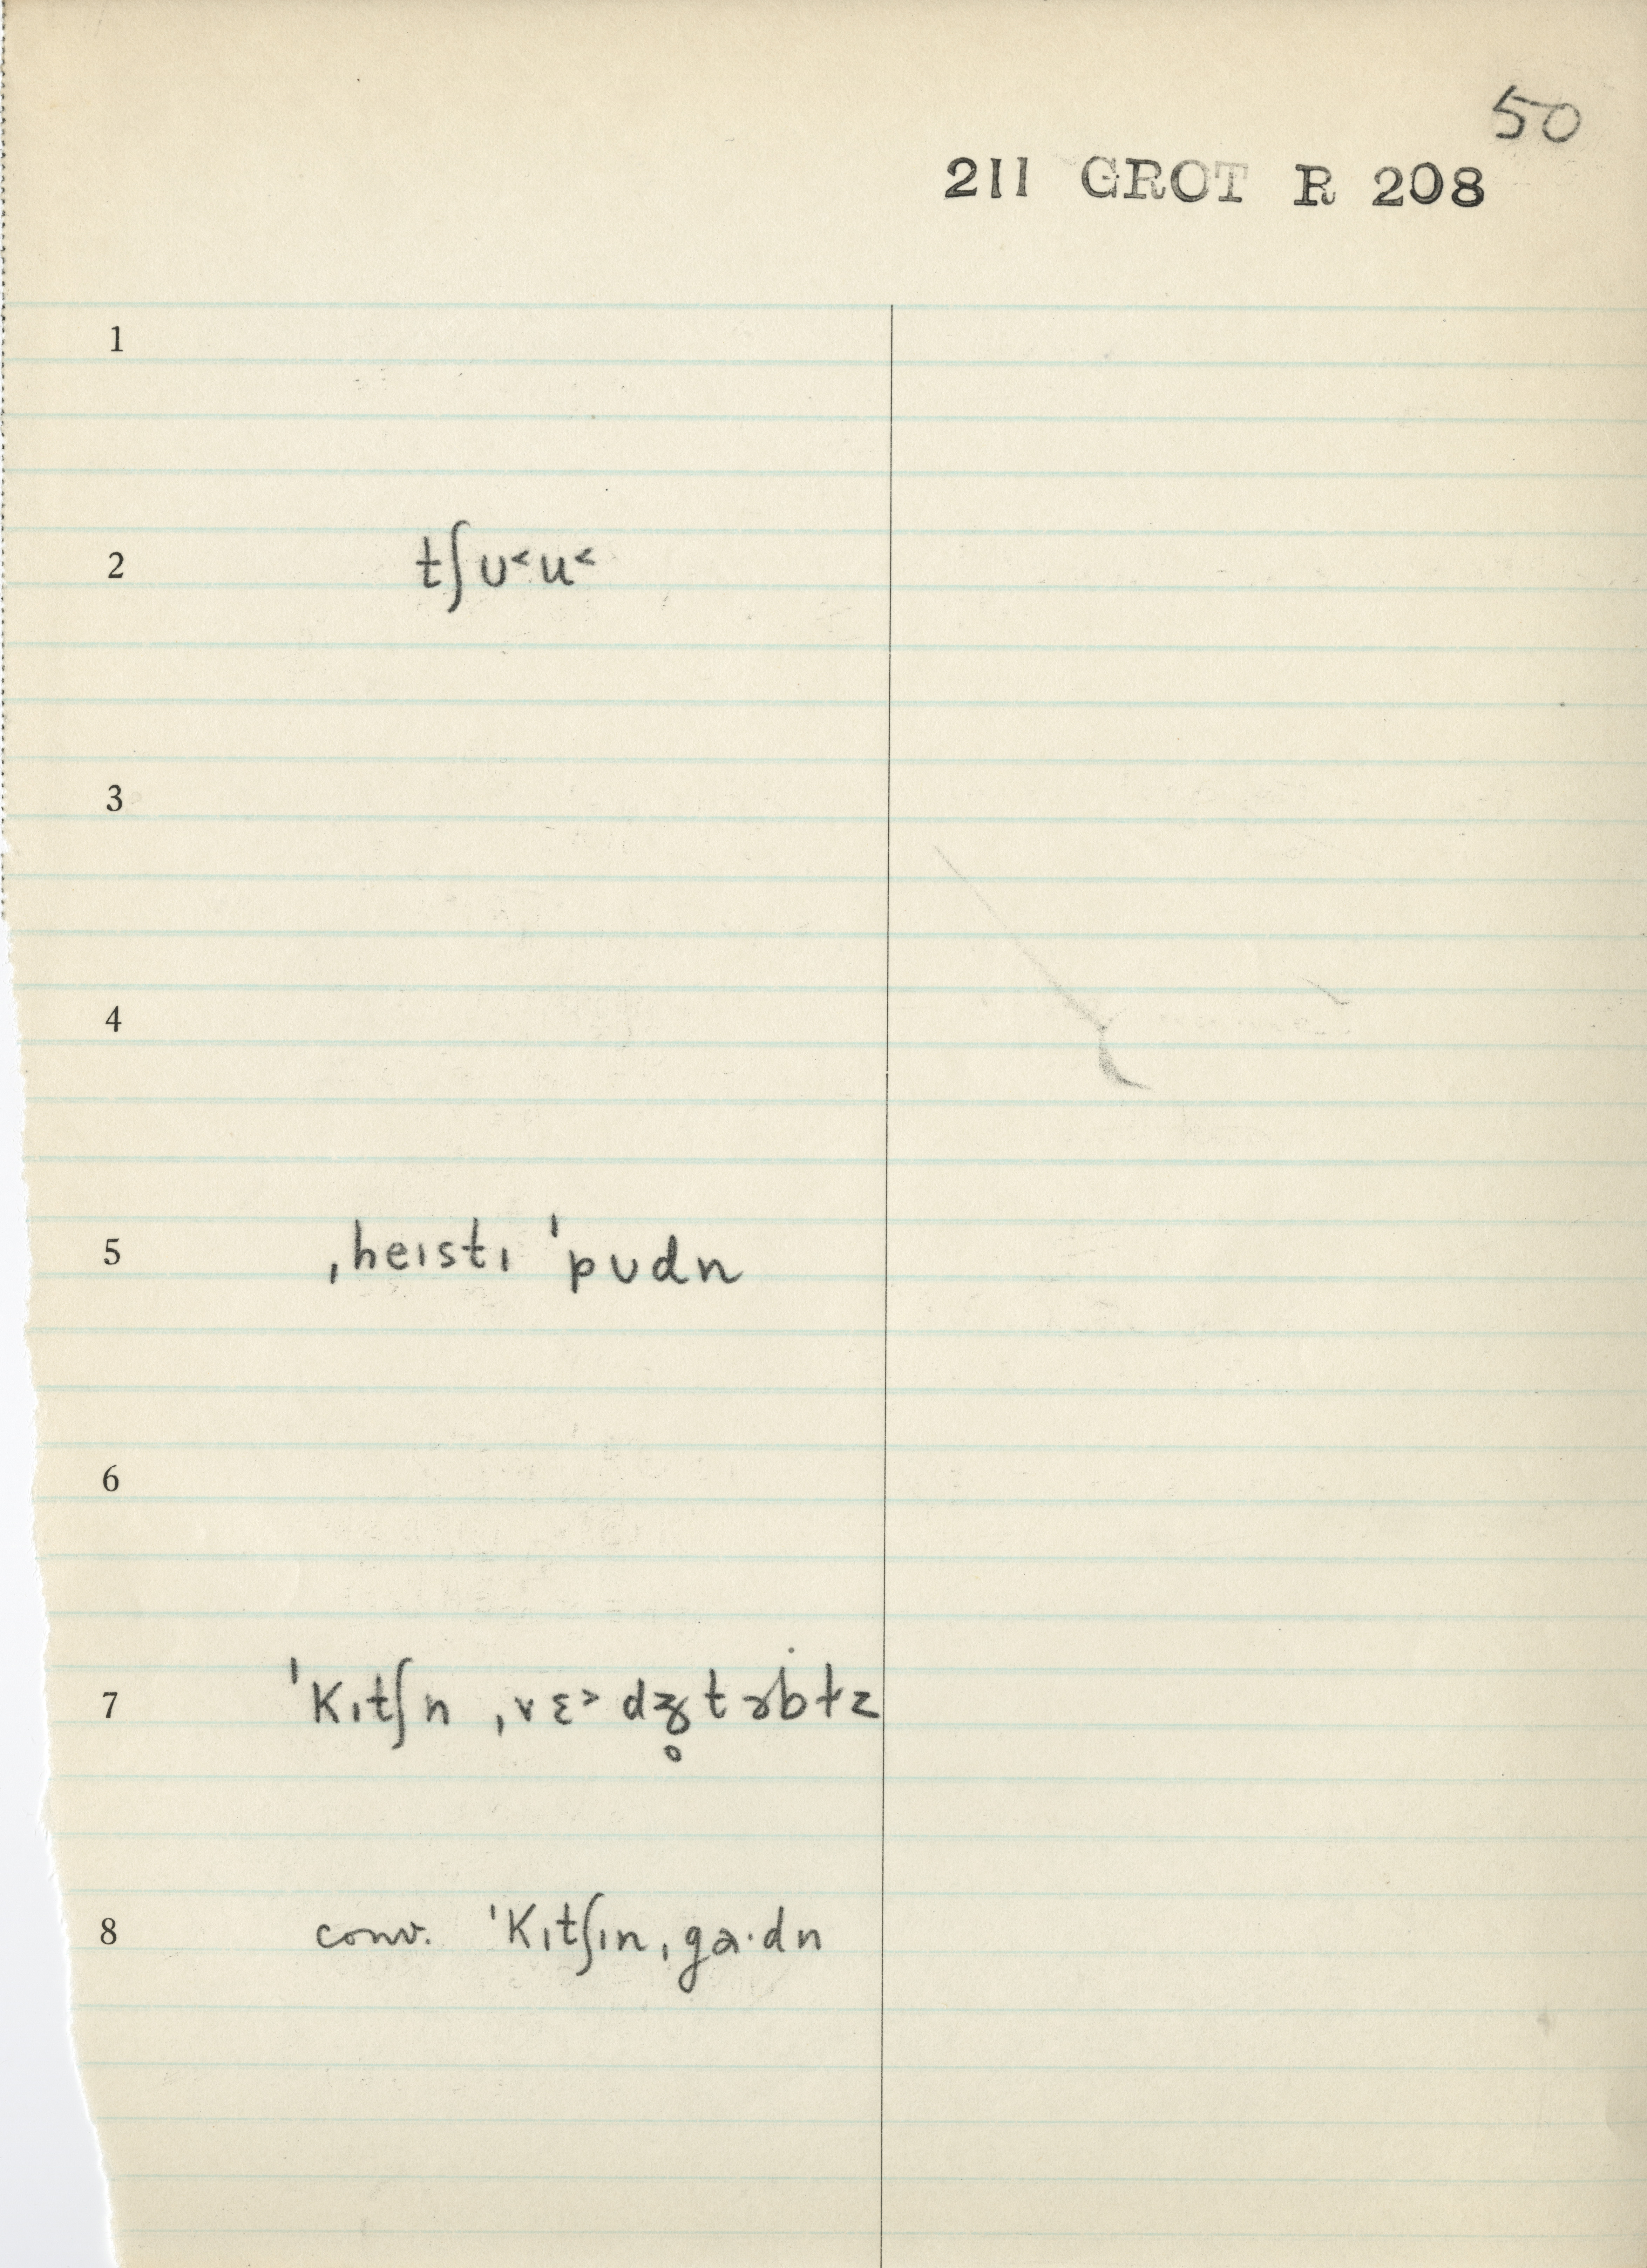 50
211 GROT R 208
1
2 tʃʊ˂u˂
3
4
5 ˌheɪstɪ ˈpʊdn
6
7 ˈkɪtʃn ˌvɛ˃dʒ̥təbɫz
8 conv. ˈkɪtʃɪn ˌgaˑdn